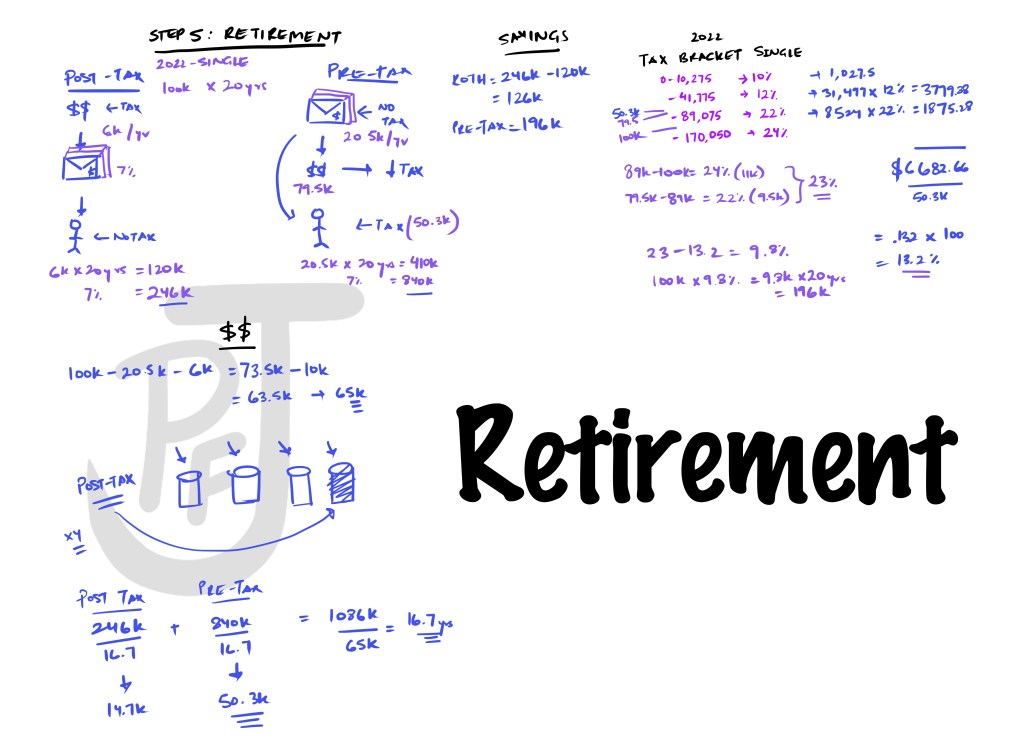 STEP 5: RETIREMENT
POST-TAX
2022-SINGLE
100K x 20yrs
$$ ← TAX
6K/yr
$
7%
← NO TAX
6K x 20yrs = 120K
7% = 246K
PRE-TAX
$
← NO TAX
20.5K/yr
$$ → ↓ TAX
79.5K
← TAX (50.3K)
20.5K x 20yrs = 410K
7% = 840K
SAVINGS
ROTH = 246K - 120K
= 126K
PRE-TAX = 196K
2022
TAX BRACKET SINGLE
0-10,275 → 10% → 1,027.5
-41,775 → 12% → 31,499 x 12% = 3779.88
50.3K
79.5
-89,075 → 22% → 8524 x 22% = 1875.28
100K
-170,050 → 24%
89K-100K = 24% (11K)
79.5K-89K = 22% (9.5K)
23%
$6682.66
50.3K
= .132 x 100
= 13.2%
23 - 13.2 = 9.8%
100K x 9.8% = 9.8K x 20yrs
= 196K
$$
100K - 20.5K - 6K = 73.5K - 10K
= 63.5K → 65K
POST-TAX
x4
POST TAX
246K
16.7
+
PRE-TAX
840K
16.7
= 1086K
65K
= 16.7yrs
14.7K
50.3K
PFJ
Retirement